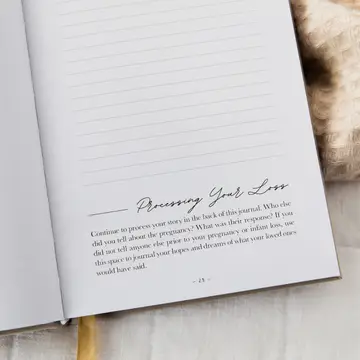 Processing Your Loss
Continue to process your story in the back of this journal. Who else
did you tell about the pregnancy? What was their response? If you
did not tell anyone else prior to your pregnancy or infant loss, use
this space to journal your hopes and dreams of what your loved ones
would have said.
- 25 -